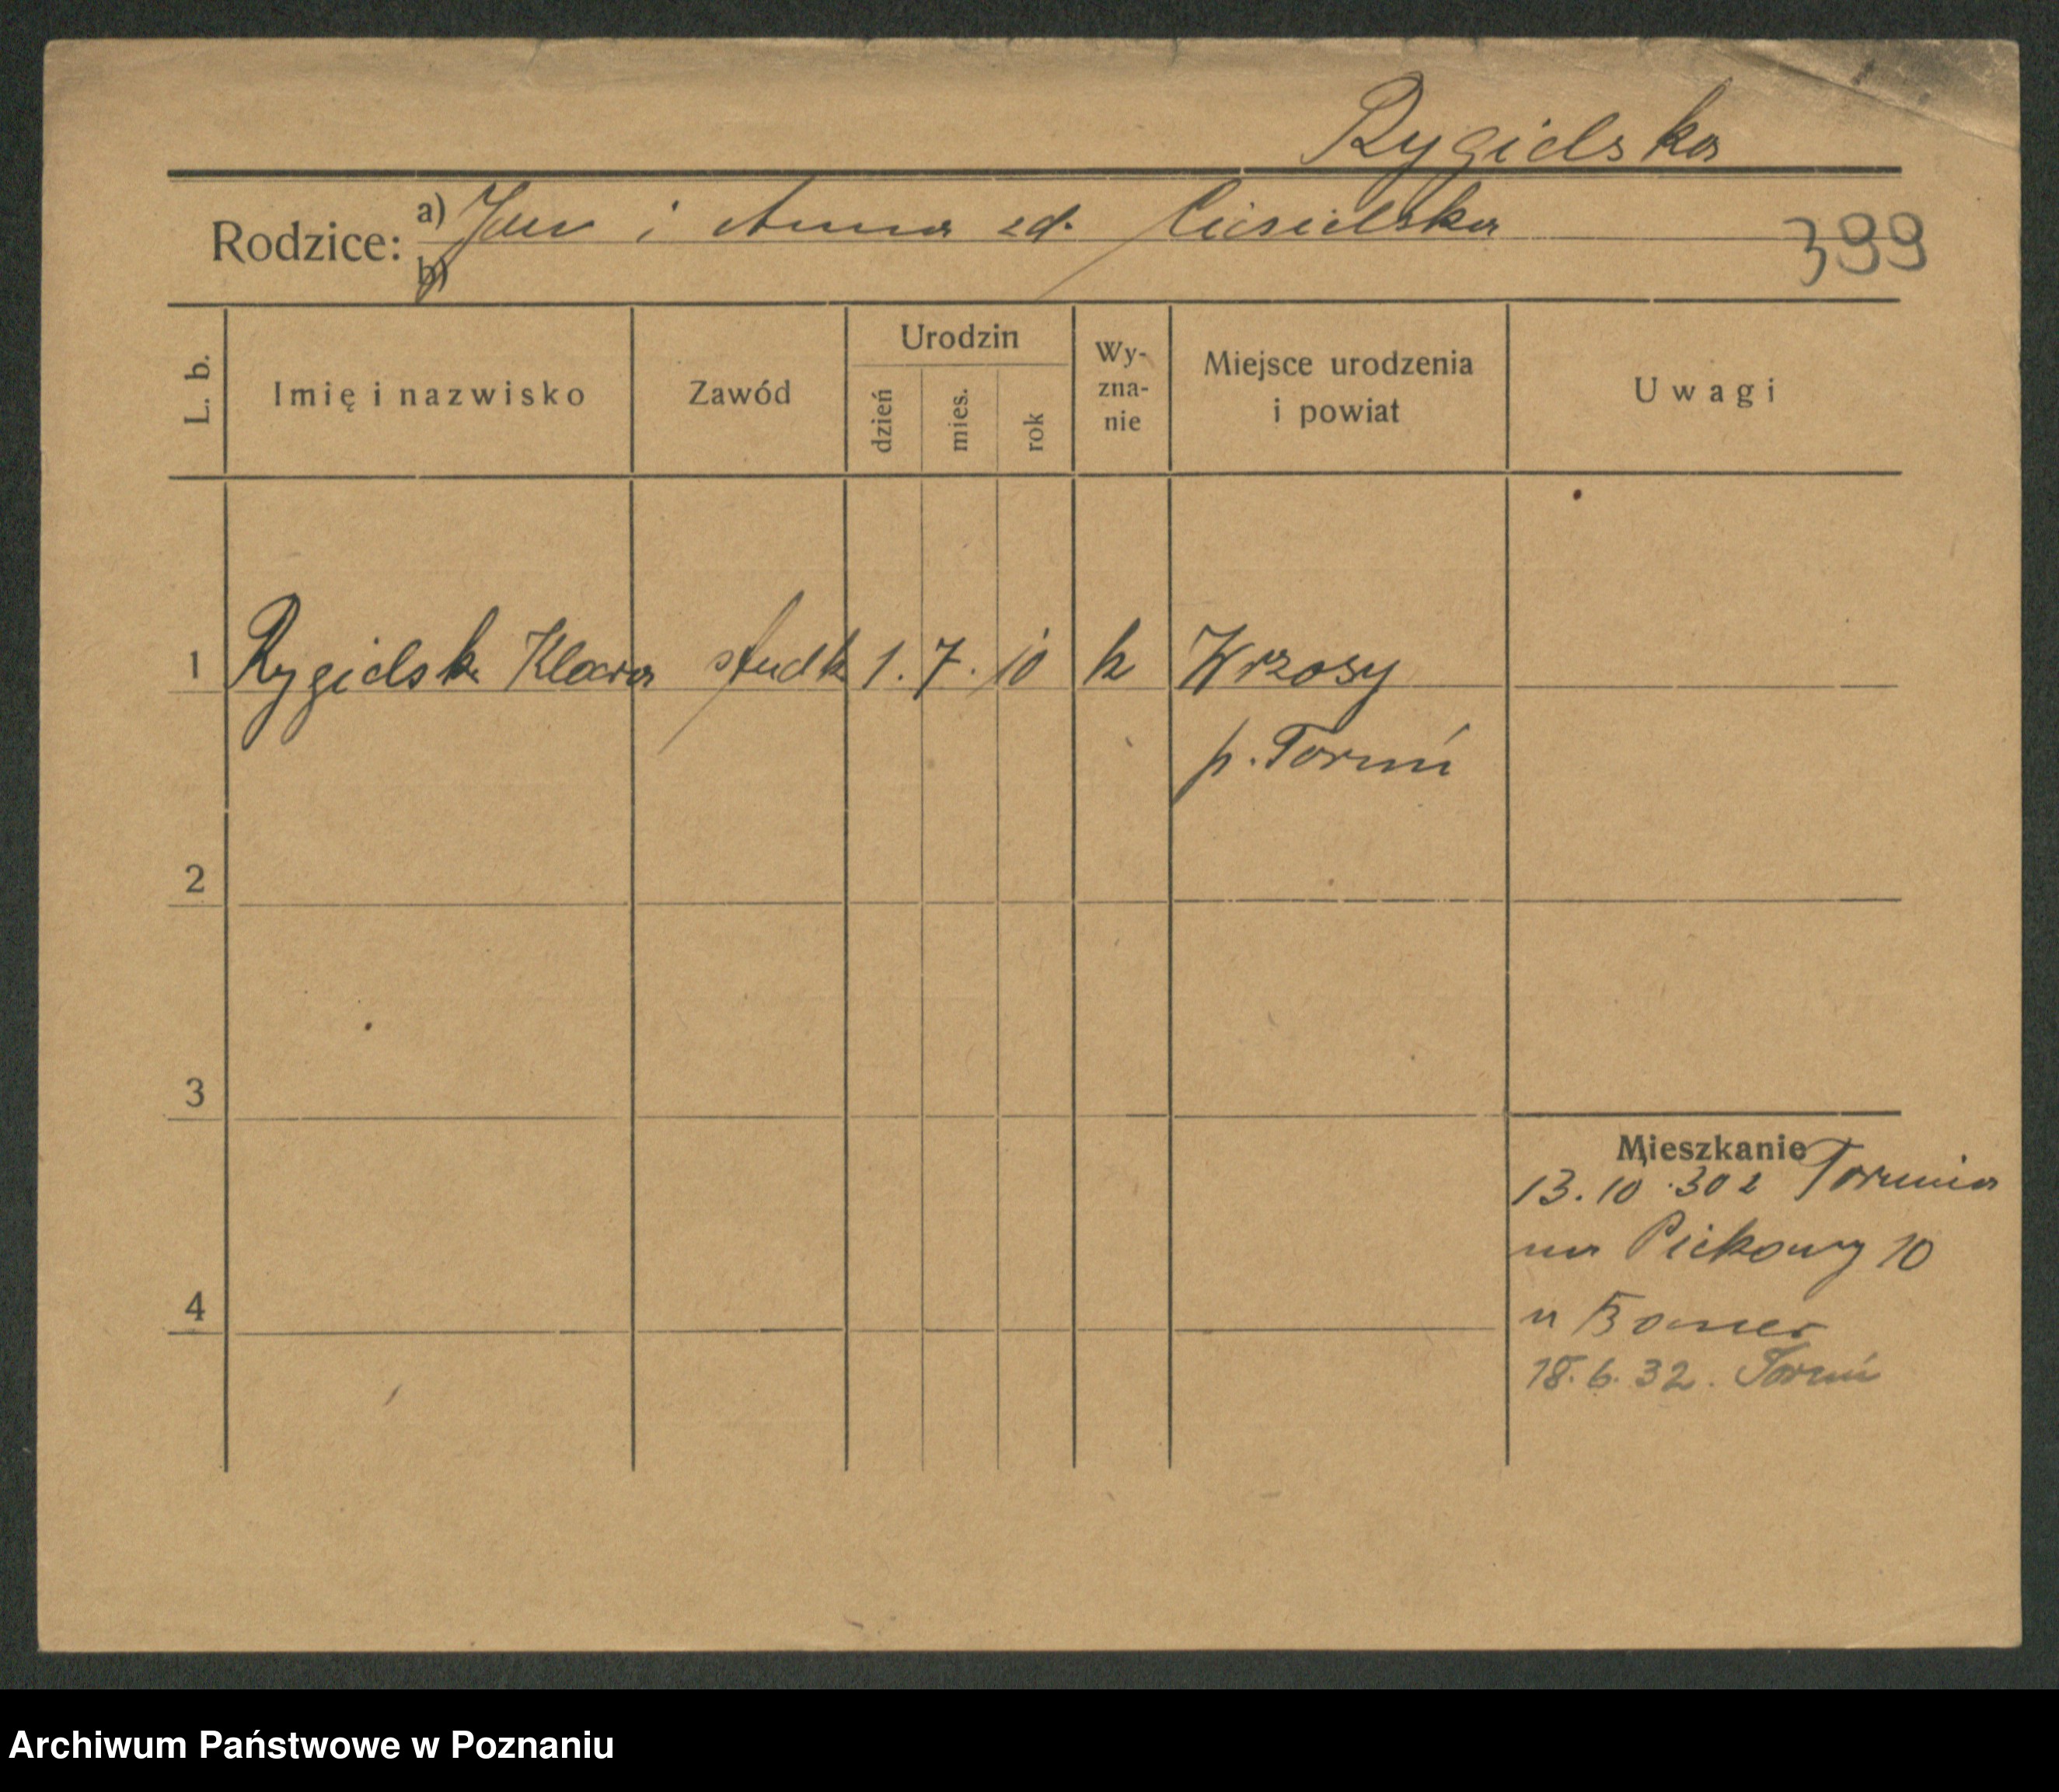 Rygielska
Rodzice: a) Jan i Anna zd. Ciesielska
b)
399
L. b.
Imię i nazwisko
Zawód
Urodzin
dzień
mies.
rok
Wy-
zna-
nie
Miejsce urodzenia
i powiat
Uwagi
1 Rygielska Klara studk 1. 7. 10 k Wrzosy
p. Toruń
2
3
4
Mieszkanie
13.10.30 z Torunia
na Piekary 10
u
18.6.32. Toruń
Archiwum Państwowe w Poznaniu